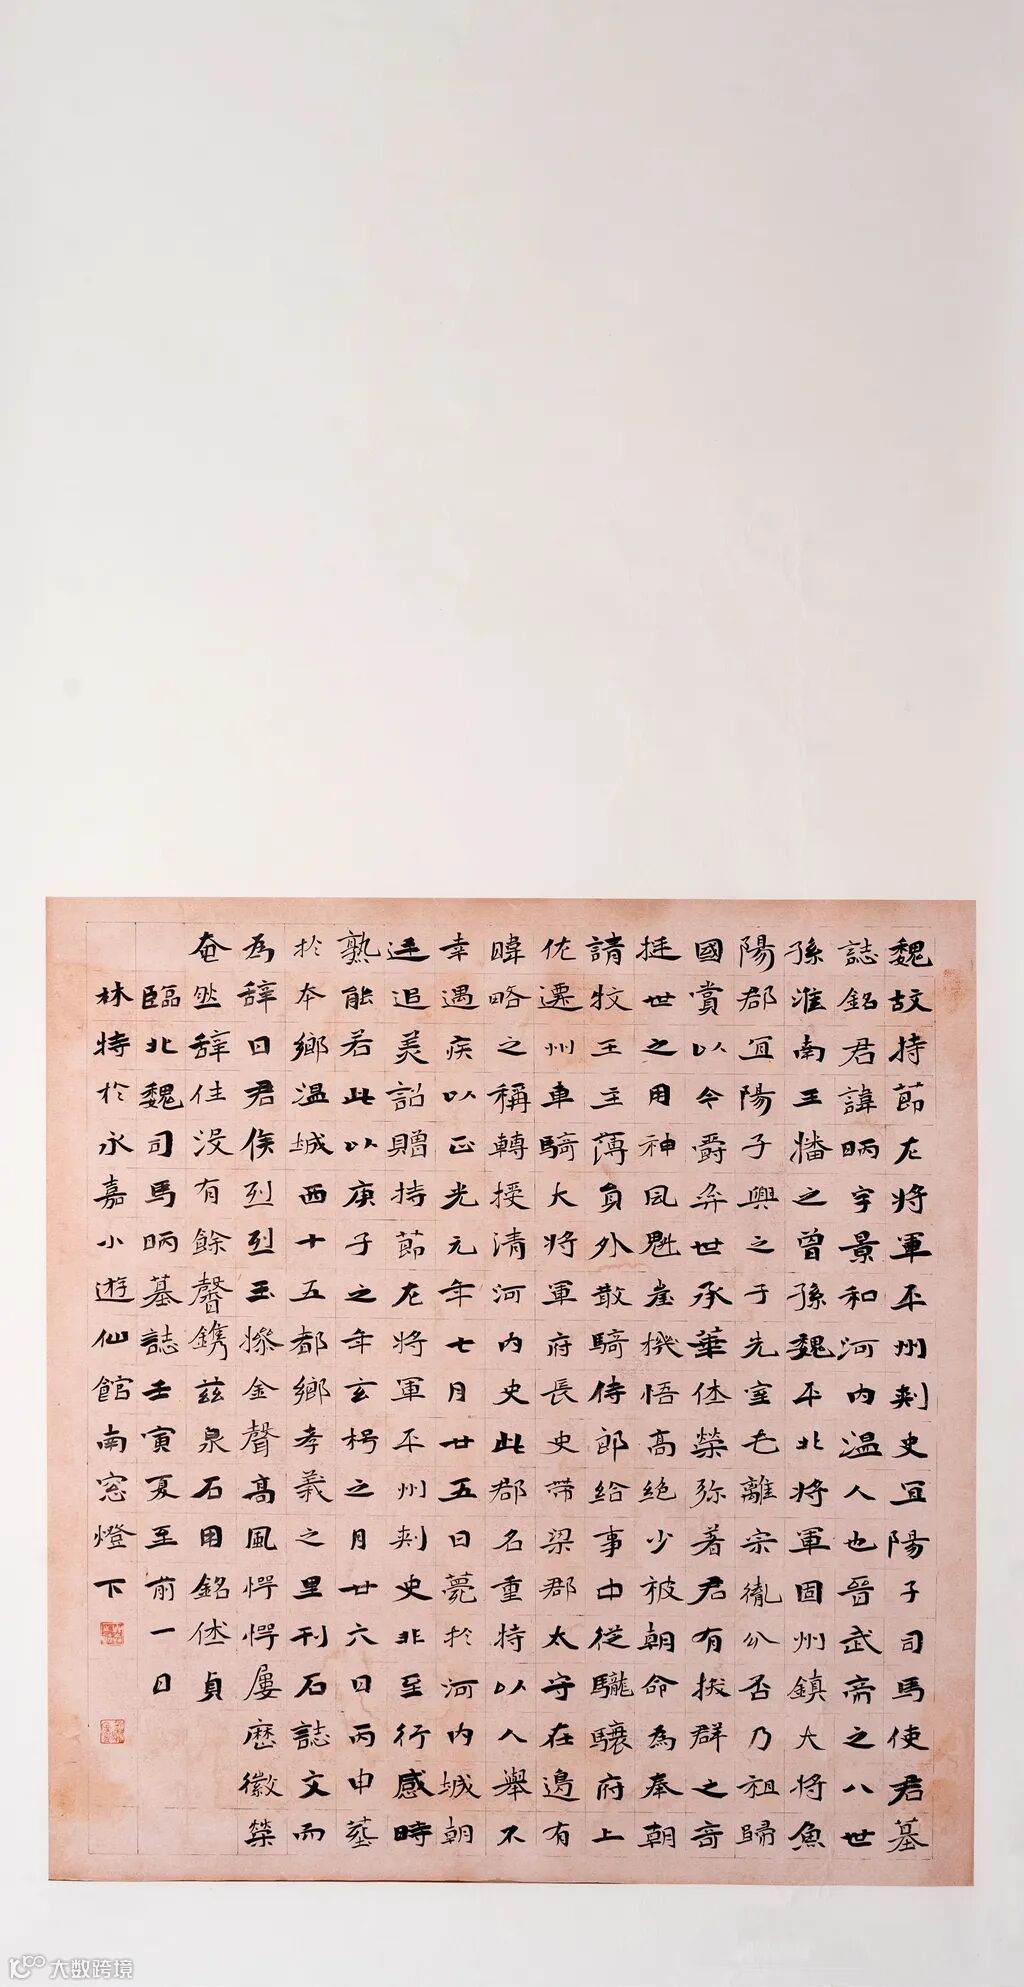 魏故持節左將軍平州刺史宜陽子司馬使君墓
誌銘君諱昞字景和河内温人也晉武帝之八世
孫淮南王播之曾孫魏平北將軍固州鎮大將魚
陽郡宜陽子興之子先室乇離宗胤分否乃祖歸
國賞以今爵弈世承華休榮弥著君有拔群之奇
挺世之用神風魁崖機悟高絶少被朝命為奉朝
請牧王主薄負外散騎侍郎給事中從驪驤府上
佐遷州車騎大將軍府長史帶梁郡太守在邊有
暐略之稱轉授清河内史此郡名重特以人舉不
幸遇疾以正光元年七月廿五日薨於河内城朝
廷追美詔贈持節左將軍平州刺史非至行感時
熟能若此以庚子之年玄枵之月廿六日丙申塟
於本鄉温城西十五都鄉孝義之里刊石誌文而
為辭曰君侯烈烈玉操金聲高風愕愕屢歷徽榮
奄㷊辭住没有餘聲鐫茲泉石用銘休貞
臨北魏司馬昞墓誌壬寅夏至前一日
林特於永嘉小遊仙館南窓燈下
大数跨境